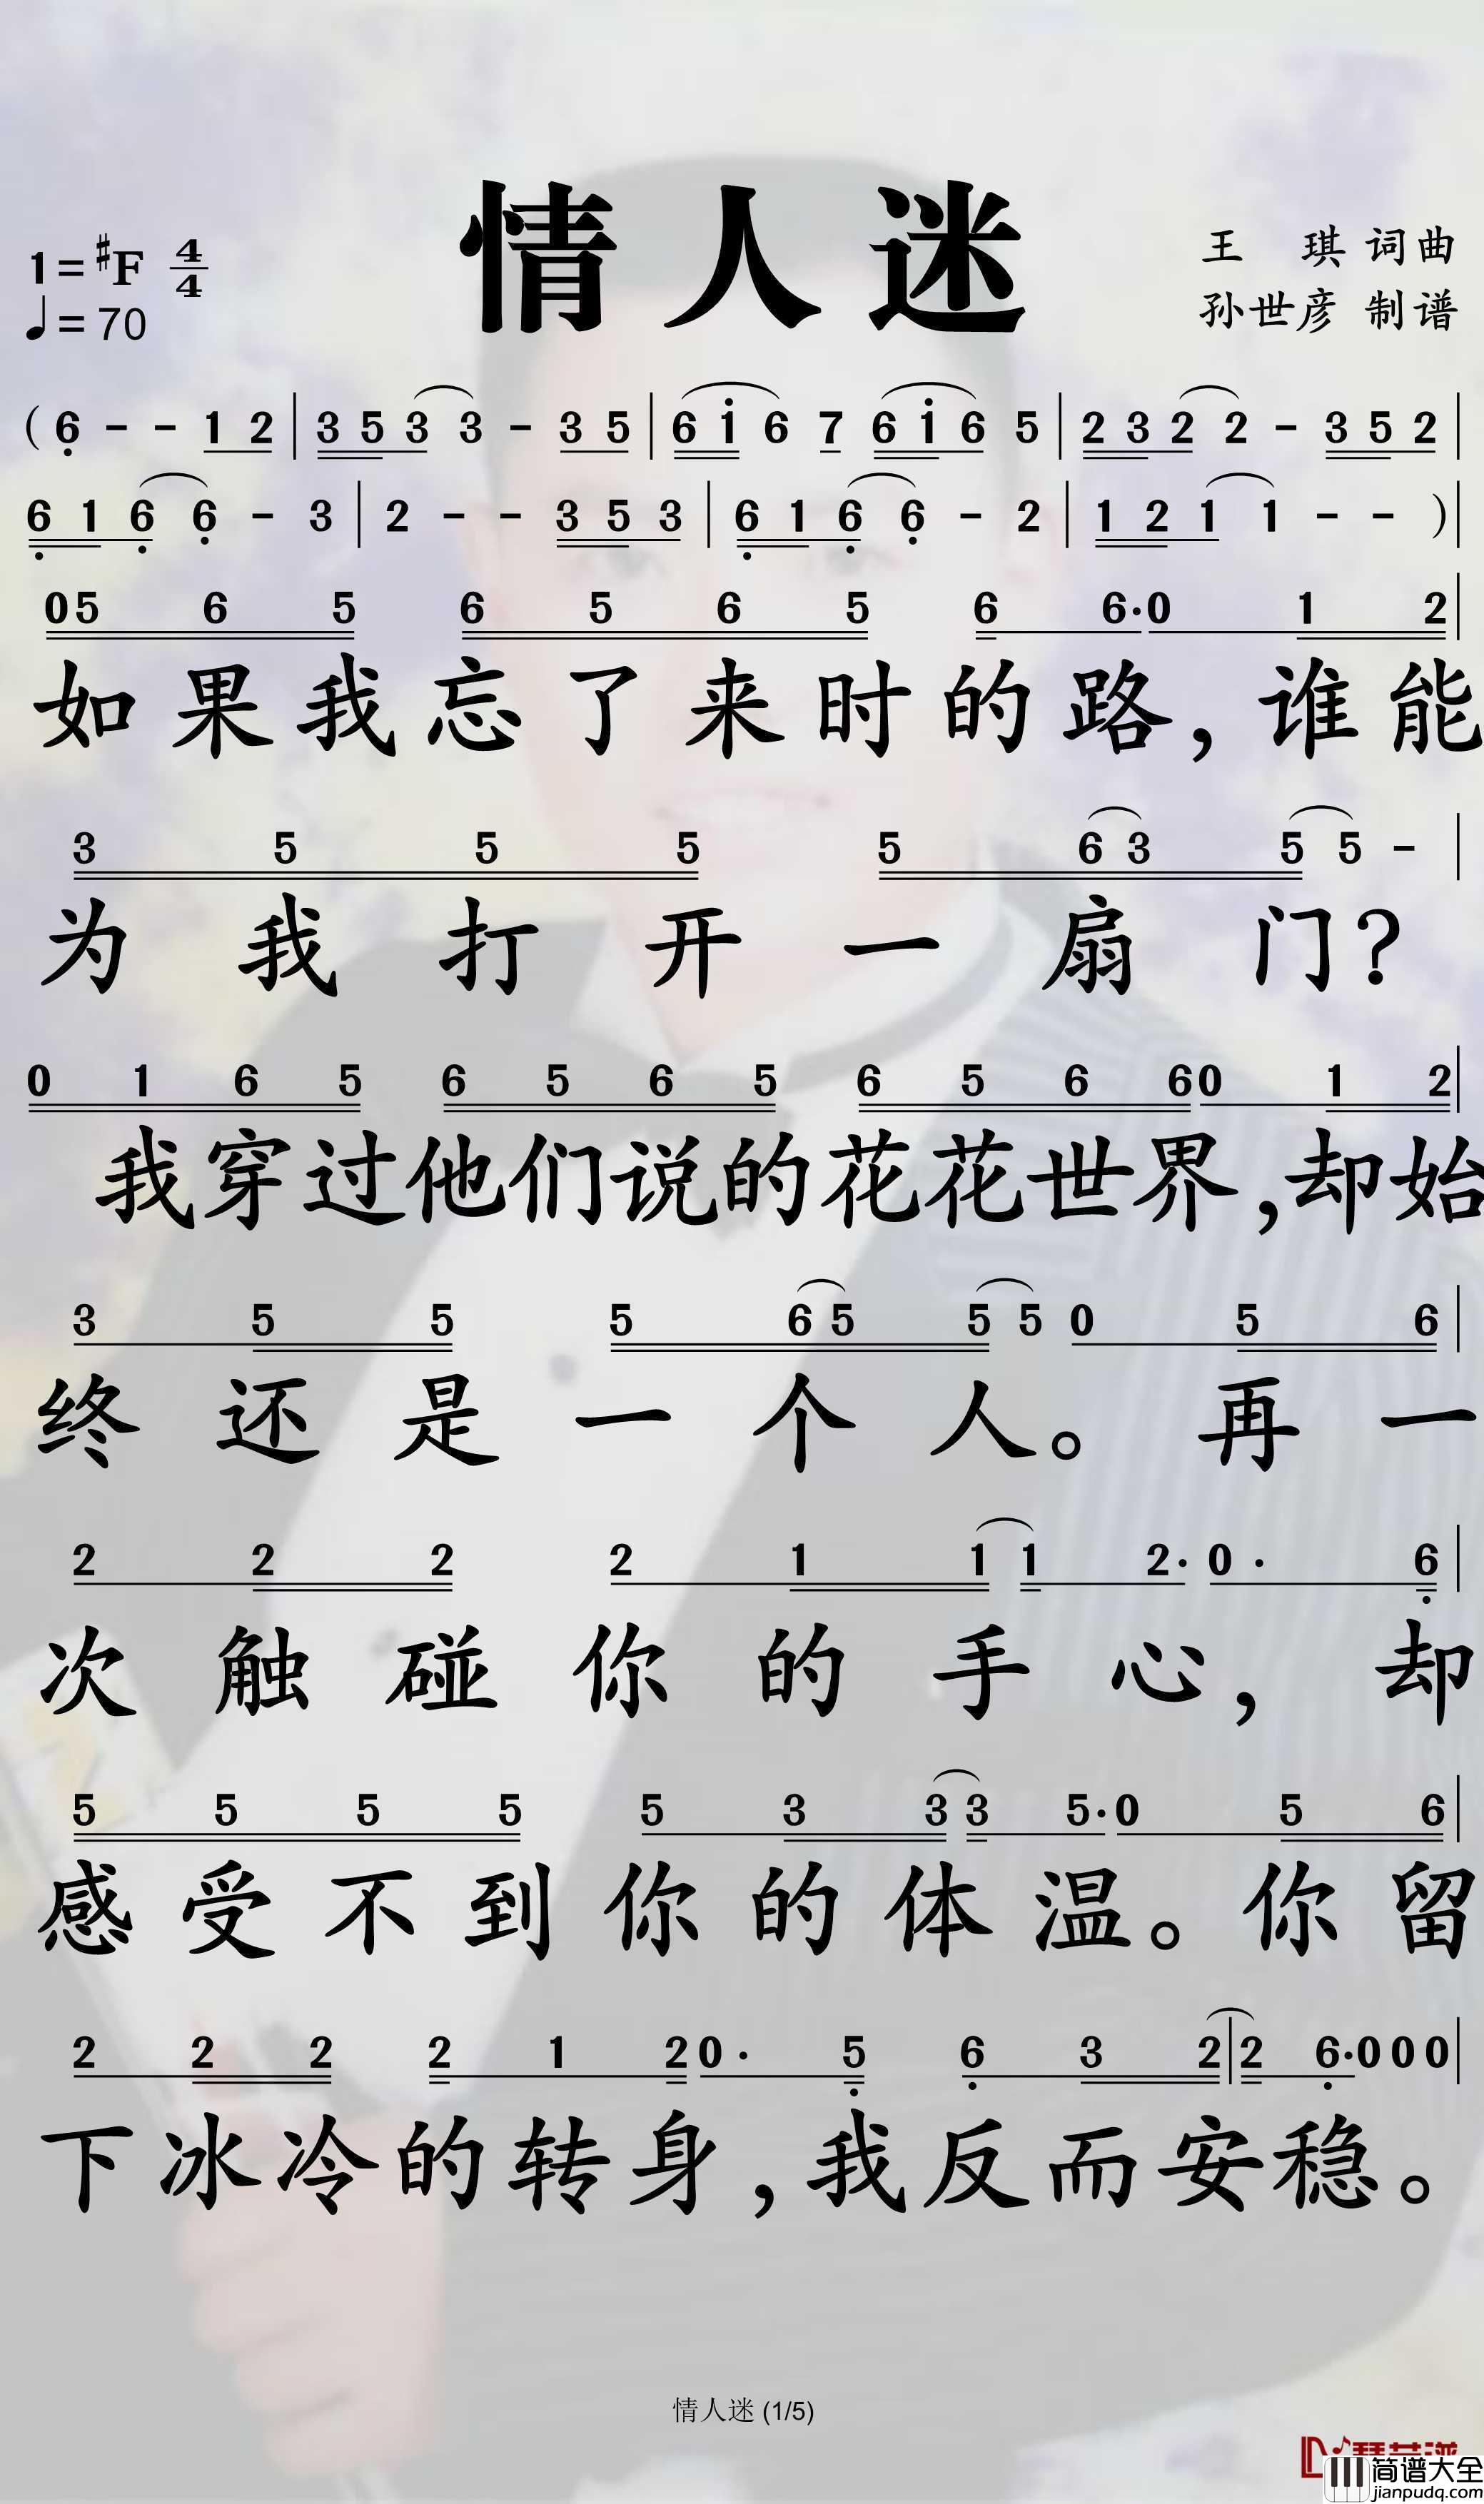 情人迷
1=♯F 4/4
♩=70
王 琪 词曲
孙世彦 制谱
( 6 - - 1 2 | 3 5 3 3 - 3 5 | 6 i 6 7 6 i 6 5 | 2 3 2 2 - 3 5 2 |
6 1 6 6 - 3 | 2 - - 3 5 3 | 6 1 6 6 - 2 | 1 2 1 1 - - ) |
0 5 6 5 6 5 6 5 6 6· 0 1 2 |
如果我忘了来时的路,谁能
3 5 5 5 5 6 3 5 5 - |
为我打开一扇门?
0 1 6 5 6 5 6 5 6 5 6 6 0 1 2 |
我穿过他们说的花花世界,却始
3 5 5 5 6 5 5 5 0 5 6 |
终还是一个人。再一
2 2 2 2 1 1 1 2· 0· 6 |
次触碰你的手心,却
5 5 5 5 5 3 3 3 5· 0 5 6 |
感受不到你的体温。你留
2 2 2 2 1 2 0· 5 6 3 2 | 2 6· 0 0 0 |
下冰冷的转身,我反而安稳。
情人迷 (1/5)
简谱大全
jianpudq.com